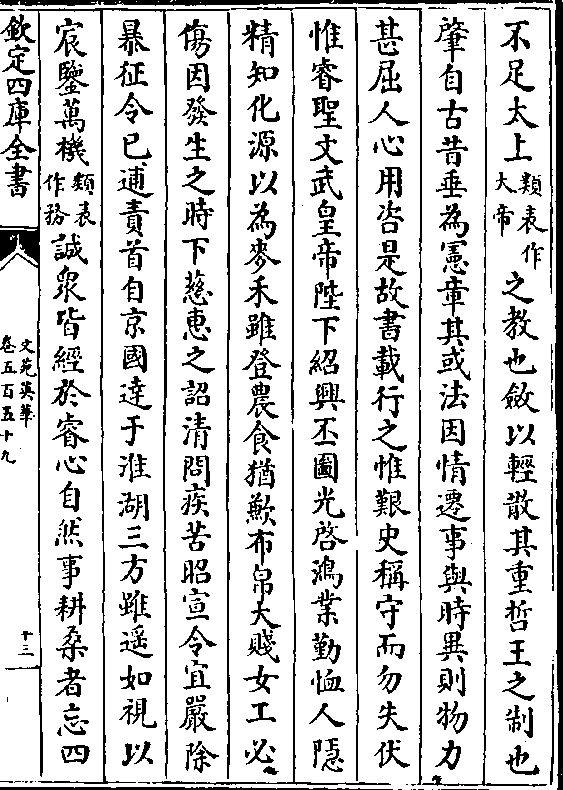 不足太上類表作大帝之教也斂以輕散其重哲王之制也
肇自古昔垂為憲章其或法因情遷事與時異則物力
甚屈人心用咨是故書載行之惟艱史稱守而勿失伏
惟睿聖文武皇帝陛下紹興丕圖光啓鴻業勤恤人隱
精知化源以為麥禾雖登農食猶歉布帛大賤女工必
傷因發生之時下慈惠之詔清問疾苦昭宣令宜嚴除
暴征令已逋責首自京國達于淮湖三方雖遥如視以
宸鑒萬機類表作務誠衆皆經於睿心自然事耕桑者忘四
欽定四庫全書
文苑英華
卷五百五十九
十三